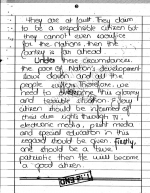 they are at fault. They claim
to be a responsible citizen but
they cannot even sacrifice
for the Nations, then the
country is far ahead.
Under these circumstances,
the pace of Nation's development
slows down and all the
people suffer. Therefore, we
need to overcome this gloomy
and terrible situation. Fellow
citizen should be informed of
their due rights through
electronic media, print media
and special education in this
regard should be given. Firstly,
one should be a true
patriotic then he will become
a good citizen.